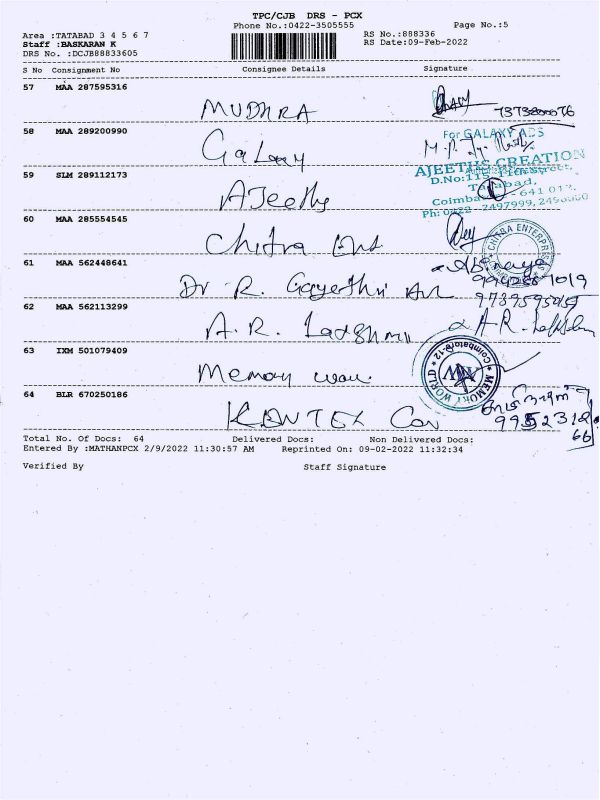 TPC/CJB DRS - PCX
Phone No.:0422-3505555 Page No.:5
Area :TATABAD 3 4 5 6 7 RS No.:888336
Staff :BASKARAN K RS Date:09-Feb-2022
DRS No. :DCJB88833605
S No Consignment No Consignee Details Signature
57 MAA 287595316
MUDHRA
58 MAA 289200990 For GALAXY ADS
Galaxy
59 SLM 289112173 AJEETHS CREATION
AJeeths Tatabad,
60 MAA 285554545
Chitra Ent CHITRA ENTERPRISES
61 MAA 562448641
Dr R. Gayethri
62 MAA 562113299 9789595959
A.R. Lakshmi A.R.
63 IXM 501079409
Memory MEMORY WORLD Coimbatore-12
64 BLR 670250186
Con
99523128
66
Total No. Of Docs: 64 Delivered Docs: Non Delivered Docs:
Entered By :MATHANPCX 2/9/2022 11:30:57 AM Reprinted On: 09-02-2022 11:32:34
Verified By Staff Signature